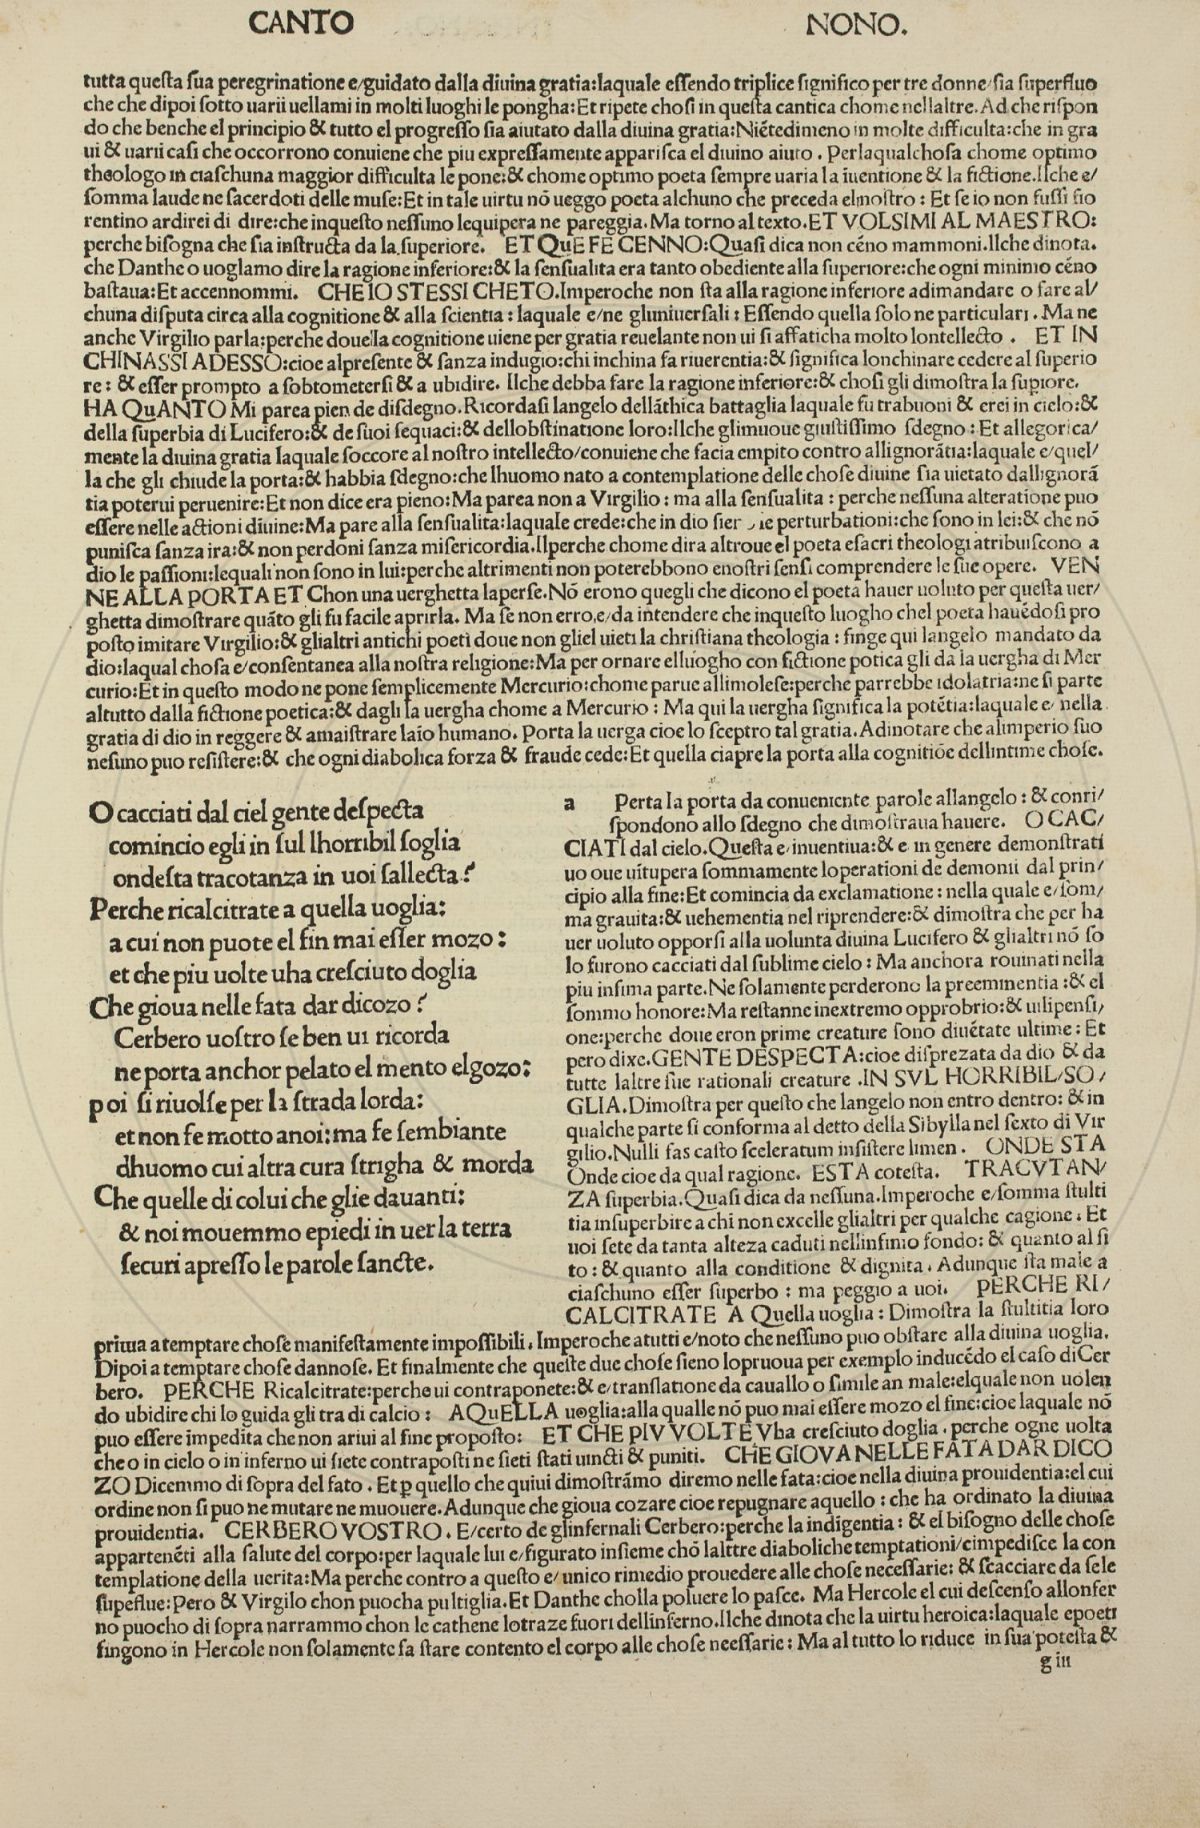 CANTO NONO.
tutta queſta ſua peregrinatione e/guidato dalla diuina gratia:laquale eſſendo triplice ſignifico per tre donne/ſia ſuperfluo
che che dipoi ſotto uarii uellami in molti luoghi le pongha:Et ripete choſi in queſta cantica chome nellaltre. Ad che riſpon
do che benche el principio & tutto el progreſſo ſia aiutato dalla diuina gratia:Niétedimeno in molte difficulta:che in gra
ui & uarii caſi che occorrono conuiene che piu expreſſamente appariſca el diuino aiuto. Perlaqualchoſa chome optimo
theologo in ciaſchuna maggior difficulta le pone:& chome optimo poeta ſempre uaria la iuentione & la fictione.Ilche e/
ſomma laude ne ſacerdoti delle muſe:Et in tale uirtu nõ ueggo poeta alchuno che preceda elnoſtro: Et ſe io non fuſſi fio
rentino ardirei di dire:che inqueſto neſſuno lequipera ne pareggia. Ma torno al texto. ET VOLSIMI AL MAESTRO:
perche biſogna che ſia inſtructa da la ſuperiore. ET QuE FE CENNO:Quaſi dica non céno mammoni.Ilche dinota.
che Danthe o uoglamo dire la ragione inferiore:& la ſenſualita era tanto obediente alla ſuperiore:che ogni minimo céno
baſtaua:Et accennommi. CHE IO STESSI CHETO.Imperoche non ſta alla ragione inferiore adimandare o fare al/
chuna diſputa circa alla cognitione & alla ſcientia: laquale e/ne gluniuerſali: Eſſendo quella ſolo ne particulari. Ma ne
anche Virgilio parla:perche doue la cognitione uiene per gratia reuelante non ui ſi affaticha molto lontellecto. ET IN
CHINASSI ADESSO:cioe alpreſente & ſanza indugio:chi inchina fa riuerentia:& ſignifica lonchinare cedere al ſuperio
re: & eſſer prompto a ſobtometerſi & a ubidire. Ilche debba fare la ragione inferiore:& choſi gli dimoſtra la ſupiore.
HA QuANTO Mi parea pien de diſdegno.Ricordaſi langelo dellãthica battaglia laquale fu tra buoni & erei in cielo:&
della ſuperbia di Lucifero:& de ſuoi ſequaci:& dellobſtinatione loro:Ilche glimuoue giuſtiſſimo ſdegno: Et allegorica/
mente la diuina gratia laquale ſoccore al noſtro intellecto/conuiene che facia empito contro allignorãtia:laquale e/quel/
la che gli chiude la porta:& habbia ſdegno:che lhuomo nato a contemplatione delle choſe diuine ſia uietato dallignorã
tia poterui peruenire:Et non dice era pieno:Ma parea non a Virgilio: ma alla ſenſualita: perche neſſuna alteratione puo
eſſere nelle actioni diuine:Ma pare alla ſenſualita:laquale crede:che in dio ſien le perturbationi:che ſono in lei:& che nõ
puniſca ſanza ira:& non perdoni ſanza miſericordia.Ilperche chome dira altroue el poeta eſacri theologi atribuiſcono a
dio le paſſioni:lequali non ſono in lui:perche altrimenti non poterebbono enoſtri ſenſi comprendere le ſue opere. VEN
NE ALLA PORTA ET Chon una uerghetta laperſe.Nõ erono quegli che dicono el poeta hauer uoluto per queſta uer/
ghetta dimoſtrare quãto gli fu facile aprirla. Ma ſe non erro,e/da intendere che inqueſto luogho chel poeta hauédoſi pro
poſto imitare Virgilio:& glialtri antichi poeti doue non gliel uieti la chriſtiana theologia: finge qui langelo mandato da
dio:laqual choſa e/conſentanea alla noſtra religione:Ma per ornare elluogho con fictione potica gli da la uergha di Mer
curio:Et in queſto modo ne pone ſemplicemente Mercurio:chome parue allimoleſe:perche parrebbe idolatria:ne ſi parte
altutto dalla fictione poetica:& dagli la uergha chome a Mercurio: Ma qui la uergha ſignifica la potétia:laquale e/ nella
gratia di dio in reggere & amaiſtrare laio humano. Porta la uerga cioe lo ſceptro tal gratia. Adinotare che alimperio ſuo
neſuno puo reſiſtere:& che ogni diabolica forza & fraude cede:Et quella ciapre la porta alla cognitiõe dellintime choſe.
O cacciati dal ciel gente deſpecta
comincio egli in ſul lhorribil ſoglia
ondeſta tracotanza in uoi ſallecta?
Perche ricalcitrate a quella uoglia:
a cui non puote el fin mai eſſer mozo:
et che piu uolte uha creſciuto doglia
Che gioua nelle fata dar dicozo?
Cerbero uoſtro ſe ben ui ricorda
ne porta anchor pelato el mento elgozo:
poi ſi riuolſe per la ſtrada lorda:
et non fe motto anoi:ma fe ſembiante
dhuomo cui altra cura ſtrigha & morda
Che quelle di colui che glie dauanti:
& noi mouemmo epiedi in uer la terra
ſecuri apreſſo le parole ſancte.
a Perta la porta da conueniente parole allangelo: & conri/
ſpondono allo ſdegno che dimoſtraua hauere. O CAC/
CIATI dal cielo. Queſta e/inuentiua:& e in genere demonſtrati
uo oue uitupera ſommamente loperationi de demonii dal prin/
cipio alla fine:Et comincia da exclamatione: nella quale e/ſom/
ma grauita:& uehementia nel riprendere:& dimoſtra che per ha
uer uoluto opporſi alla uolunta diuina Lucifero & glialtri nõ ſo
lo furono cacciati dal ſublime cielo: Ma anchora rouinati nella
piu infima parte.Ne ſolamente perderono la preeminentia:& el
ſommo honore:Ma reſtanne inextremo opprobrio:& uilipenſi/
one:perche doue eron prime creature ſono diuétate ultime: Et
pero dixe.GENTE DESPECTA:cioe diſprezata da dio & da
tutte laltre ſue rationali creature. IN SVL HORRIBIL/SO/
GLIA.Dimoſtra per queſto che langelo non entro dentro: & in
qualche parte ſi conforma al detto della Sibylla nel ſexto di Vir
gilio.Nulli fas caſto ſceleratum inſiſtere limen. ONDE STA
Onde cioe da qual ragione. ESTA coteſta. TRACVTAN/
ZA ſuperbia.Quaſi dica da neſſuna.Imperoche e/ſomma ſtulti
tia inſuperbire a chi non excelle glialtri per qualche cagione. Et
uoi ſete da tanta alteza caduti nellinfimo fondo: & quanto al ſi
to: & quanto alla conditione & dignita. Adunque ſta male a
ciaſchuno eſſer ſuperbo: ma peggio a uoi. PERCHE RI/
CALCITRATE A Quella uoglia: Dimoſtra la ſtultitia loro
prima a temptare choſe manifeſtamente impoſſibili. Imperoche atutti e/noto che neſſuno puo obſtare alla diuina uoglia.
Dipoi a temptare choſe dannoſe. Et finalmente che queſte due choſe ſieno lopruoua per exemplo inducédo el caſo di Cer
bero. PERCHE Ricalcitrate:perche ui contraponete:& e/tranſlatione da cauallo o ſimile an male:elquale non uolen
do ubidire chi lo guida gli tra di calcio: AQuELLA uoglia:alla qualle nõ puo mai eſſere mozo el fine:cioe laquale nõ
puo eſſere impedita che non ariui al fine propoſto: ET CHE PIV VOLTE Vha creſciuto doglia. perche ogne uolta
che o in cielo o in inferno ui ſiete contrapoſti ne ſieti ſtati uincti & puniti. CHE GIOVA NELLE FATA DAR DICO
ZO Dicemmo di ſopra del fato. Et ꝑ quello che quiui dimoſtrãmo diremo nelle fata:cioe nella diuina prouidentia:el cui
ordine non ſi puo ne mutare ne muouere.Adunque che gioua cozare cioe repugnare aquello: che ha ordinato la diuina
prouidentia. CERBERO VOSTRO. E/certo de glinfernali Cerbero:perche la indigentia: & el biſogno delle choſe
appartenéti alla ſalute del corpo:per laquale lui e/figurato inſieme chõ lalttre diaboliche temptationi/cimpediſce la con
templatione della uerita:Ma perche contro a queſto e/unico rimedio prouedere alle choſe neceſſarie: & ſcacciare da ſe le
ſupeflue:Pero & Virgilo chon puocha pultiglia.Et Danthe cholla poluere lo paſce. Ma Hercole el cui deſcenſo allonfer
no puocho di ſopra narrammo chon le cathene lo traze fuori dellinferno.Ilche dinota che la uirtu heroica:laquale epoeti
fingono in Hercole non ſolamente fa ſtare contento el corpo alle choſe neeſſarie: Ma al tutto lo riduce in ſua poteſta &
g iii